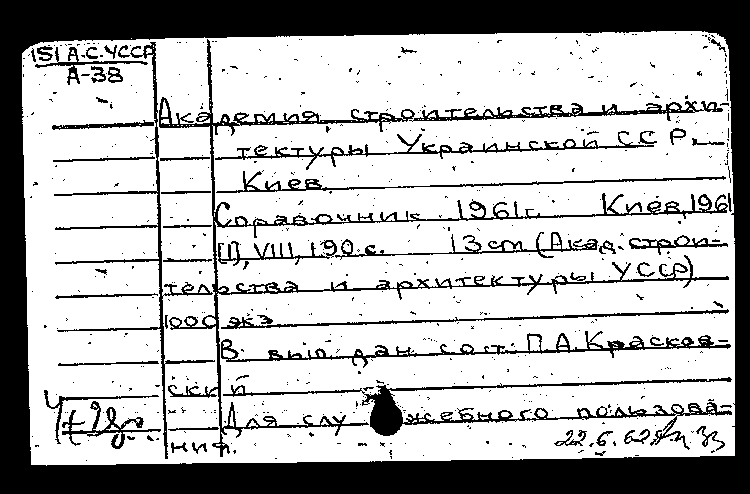 ISI А.С.УССР
А-38
Академия строительства и архи-
тектуры Украинской ССР.
Киев.
Справочник 1961г. Киев, 1961
[1], VIII, 190 с. 13 cm (Акад. строи-
тельства и архитектуры УССР)
1000 экз
В. вып дан сост: П.А. Красков-
ский
Для служебного пользова-
ния.
22.6.62